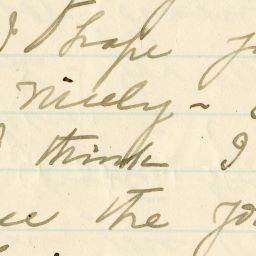 I hope
nicely ~
I think I
the